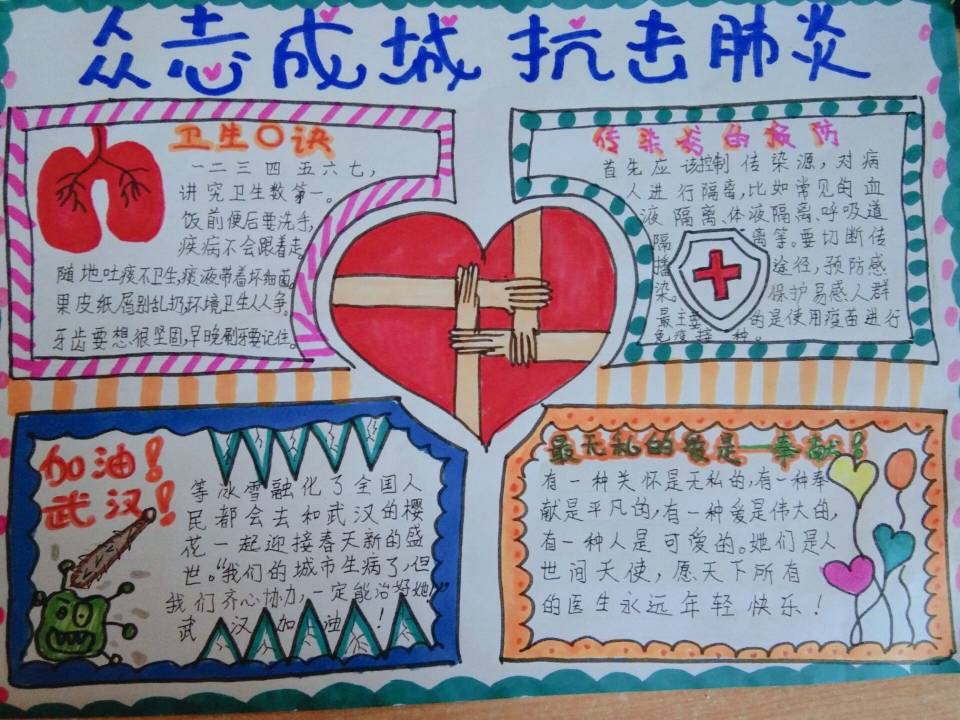 众志成城 抗击肺炎
卫生口诀
一二三四五六七，
讲究卫生数第一。
饭前便后要洗手，
疾病不会跟着走。
随地吐痰不卫生，痰液带着坏细菌。
果皮纸屑别乱扔，环境卫生人人争。
牙齿要想很坚固，早晚刷牙要记住。
传染病的预防
首先应该控制传染源，对病
人进行隔离，比如常见的血
液隔离、体液隔离、呼吸道
隔离等。要切断传
播途径，预防感
染。保护易感人群
最主要的是使用疫苗进行
免疫接种。
加油！
武汉！
等冰雪融化了全国人
民都会去和武汉的樱
花一起迎接春天新的盛
世。“我们的城市生病了，但
我们齐心协力，一定能治好她！”
武汉加油！
最无私的爱是—奉献！
有一种关怀是无私的，有一种奉
献是平凡的，有一种爱是伟大的，
有一种人是可爱的。她们是人
世间天使，愿天下所有
的医生永远年轻快乐！